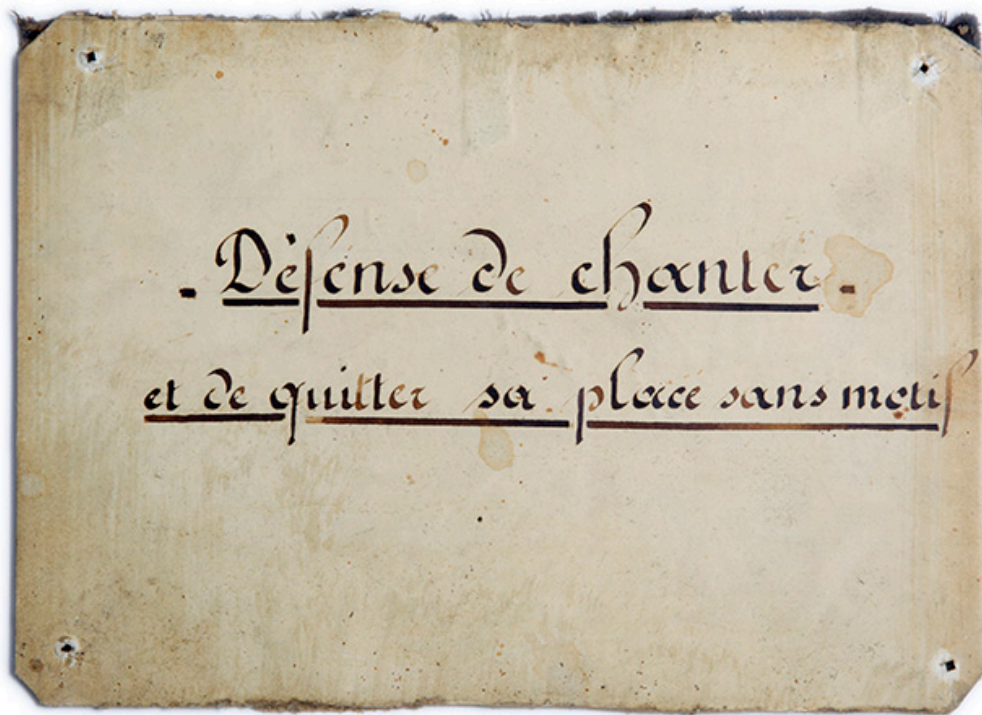 - Défense de chanter -
et de quitter sa place sans motif